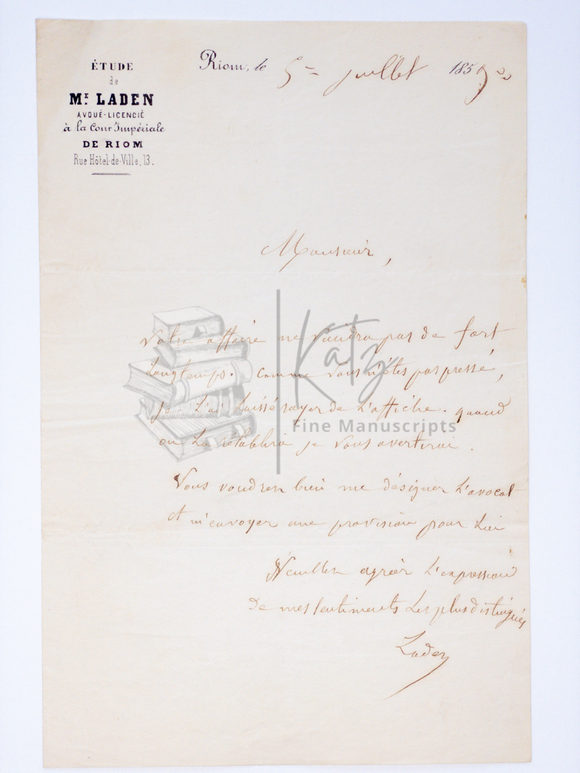 ÉTUDE
de
Mᵉ LADEN
AVOUÉ-LICENCIÉ
à la Cour Impériale
DE RIOM
Rue Hôtel-de-Ville, 13.
Riom, le 5 juillet 185
Monsieur,
Votre affaire ne viendra pas de fort
longtemps. comme vous n'êtes pas pressé,
je l'ai laissé rayer de l'affiche. quand
on la rétablira je vous avertirai.
Vous voudrez bien me désigner l'avocat
et m'envoyer une provision pour lui
Veuillez agréer l'expression
de mes sentiments les plus distingués
Laden
Katz
Fine Manuscripts